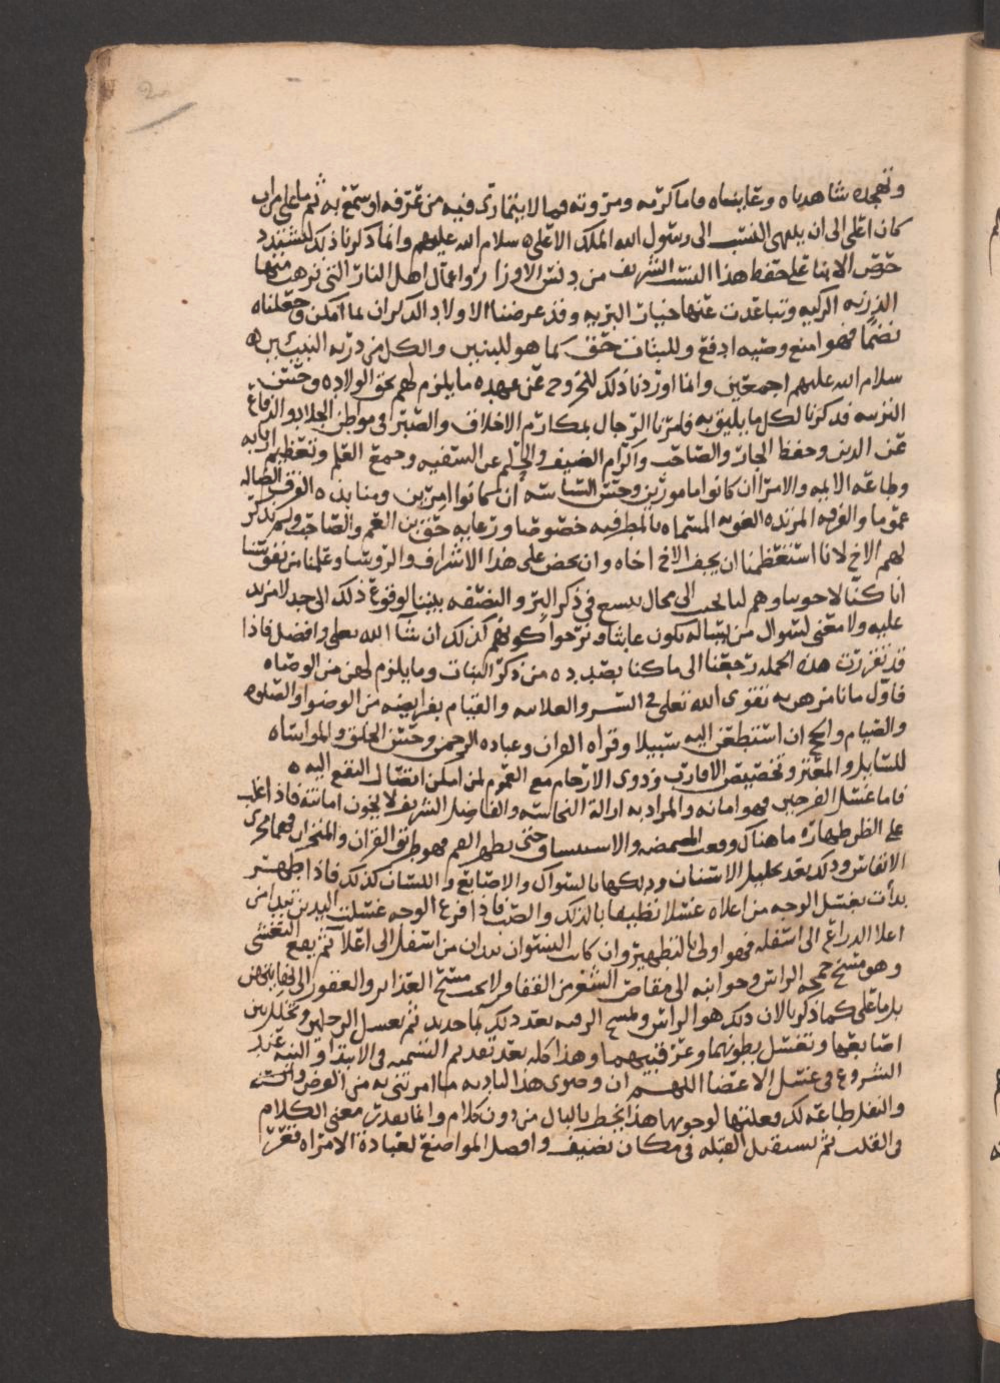 2
وتهجده شاهدناه وعايناه واما كرمه ومروته فمما لا يتمارى فيه من عرفه او سمع به ثم ما على من اب
كان اعلى الى ان ينتهى النسب الى رسول الله الملك الاعلى ه سلام الله عليهم وانما ذكرنا ذلك ليشتد
حرص الابنا على حفظ هذا النسب الشريف من دنس الاوزار واعمال اهل النار التى نزهت عنها
الذريه الزكيه وتباعدت عنها خيار البريه وقد عرضنا الاولاد الذكران بما امكن وجعلناه
نضما فهو امنع وصيه ادفع وللبنات حق كما هو للبنين والكل من ذريه النبيين ه
سلام الله عليهم اجمعين وانما اوردنا ذلك للخروج عن عهده ما يلزم لهم بحق الولاده وحسن
التربيه فذكرنا لكل ما يليق به فامرنا الرجال بمكارم الاخلاق والصبر فى مواطن الجلاد والدفاع
عن الدين وحفظ الجار والصاحب واكرام الضيف والحلم عن السفيه وجمع العلم وتعظيم
وطاعه الايمه والامرا ان كانوا مامورين وحسن السياسه ان كانوا امرين ومنابذه الفرق الضاله
عموما والفرقه المرتده الغويه المسماه بالمطرفيه خصوصا ورعايه حق بن العم والصاحب ولم نذكر
لهم الاخ لانا استعظمنا ان يجفو الاخ اخاه وان يحض على هذا الاشراف والروسا وعلمنا من نفوسنا
انا كنا لاخوتنا وهم لنا بحب الى محال يتسع فى ذكر البر والنصفه بيننا لوقوع ذلك الى حد لا مزيد
عليه ولا معنى لسوال من يساله يكون عابثا ونرجوا كونهم كذلك ان شا الله تعلى وافضل فاذا
قد تقررت هذه الجمله رجعنا الى ما كنا بصدده من ذكر البنات وما يلزم لهن من الوصاه
فاول ما نامرهن به تقوى الله تعلى فى السر والعلانيه والقيام بفرايضه من الوضوا والصلوه
والصيام والحج ان استطعن اليه سبيلا وقراه القران وعباده الرحمن وحسن الخلق والمواساه
للسايل والمعتر وتخصيص الاقارب وذوى الارحام مع العموم لمن امكن اتصال النفع اليه ه
فاما غسل الفرجين فهو امانه والمراد به ازالة النجاسه والفاضل الشريف لا يخون امانته فاذا غلب
على الظن طهاره ما هناك وقعت المضمضه والاستنشاق حتى يطهر الفم فهو طريق القران والمنخران فهما مجرى
الانفاس وذلك بعد تخليل الاسنان ودلكها بالسواك والاصابع واللسان كذلك فاذا طهر
بدأت بغسل الوجه من اعلاه غسلا نظيفا بالدلك والصب فاذا فرغ الوجه غسلت اليدين تبدا من
اعلا الذراع الى اسفله فهو اولى بالتطهير وان كانت النسوان يبدان من اسفل الى اعلا ثم يقع
وهو مسح جمجمه الراس وجوانبه الى مقاص الشعر من القفا ولا يجب مسح الغدائر والعقور الى
بل ما على كما ذكرنا لان ذلك هو الراس ولمسح الرقبه بعد ذلك بما جديد ثم بغسل الرجلين وتخلل بين
اصابعها وتغسل بطونهما وعرقوبيهما وهذا كله بعد تقديم التسميه فى الابتدا والنيه عند
الشروع فى غسل الاعضا اللهم ان وضوى هذا لتاديه ما امرتنى به من الفرض والسنه
والنفل طاعه لك فعلتها لوجوبها هذا يخطر بالبال من دون كلام وانما يقدر معنى الكلام
فى القلب ثم تستقبل القبله فى مكان نضيف وافضل المواضع لعبادة الامراه